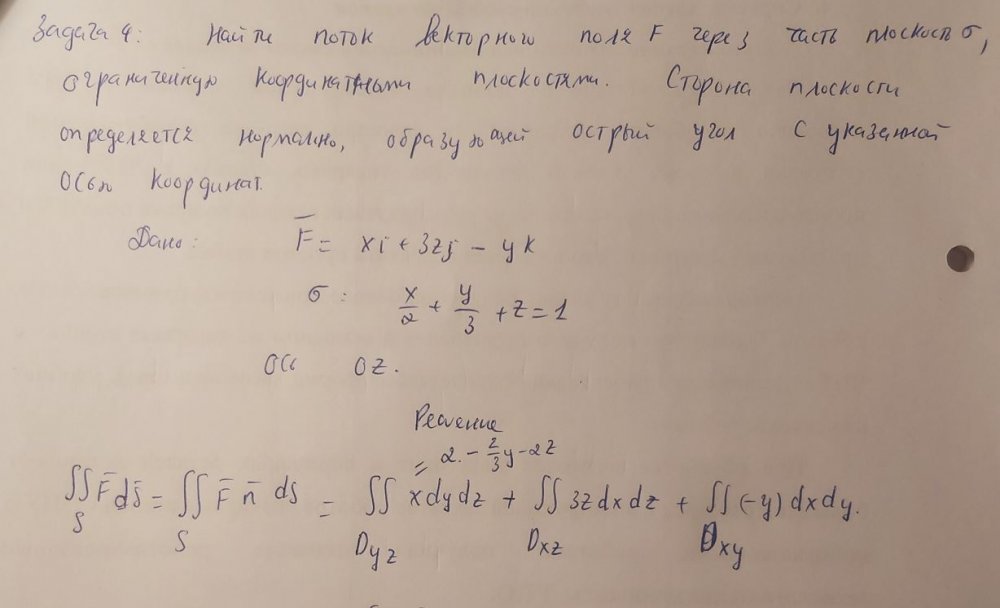 Задача 4: Найти поток векторного поля F через часть плоскости σ,
ограниченную координатными плоскостями. Сторона плоскости
определяется нормалью, образующей острый угол с указанной
осью координат.
Дано: F̅ = xi + 3zj − yk
σ: x/2 + y/3 + z = 1
ось OZ.
Решение
= 2 - 2/3 y - 2z
∬_S F̅ dS̅ = ∬_S F̅ n̅ dS = ∬_Dyz x dy dz + ∬_Dxz 3z dx dz + ∬_Dxy (-y) dx dy.